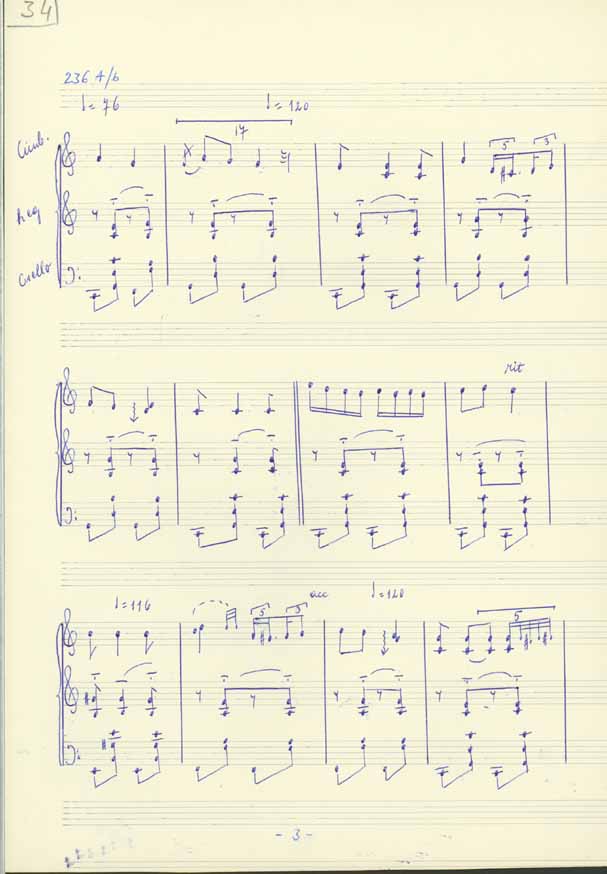 34
236 A/b
♩= 76 ♩= 120
17
Cimb.
5 3
heg
Cello
rit
♩=116 acc ♩=120
5 3 5
- 3 -